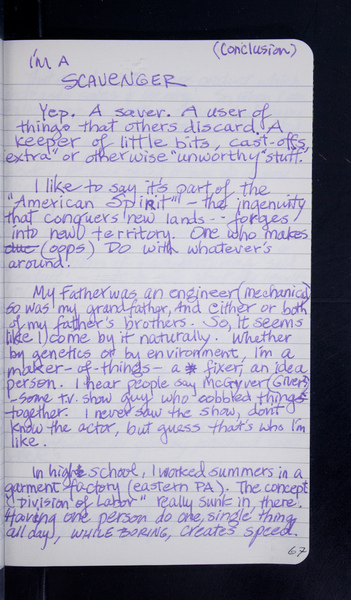 (Conclusion)
I'M A
SCAVENGER
Yep. A saver. A user of
things that others discard. A
keeper of little bits, cast-offs,
extra" or otherwise "unworthy" stuff.
I like to say it's part of the
"American Spirit" - the ingenuity
that conquers new lands -- forges
into new territory. One who makes
due (oops) Do with whatever's
around.
My Father was an engineer (mechanical)
so was my grandfather, And Either or both
of my father's brothers. So, it seems
like I come by it naturally. Whether
by genetics or by environment, I'm a
maker-of-things - a fixer, an idea
person. I hear people say McGyver (Giver?)
- some t.v. show guy who cobbled things
together. I never saw the show, don't
know the actor, but guess that's who I'm
like.
In high school, I worked summers in a
garment factory (eastern PA). The concept
"Division of Labor" really sunk in, there.
Having one person do one, single thing,
all day, WHILE BORING, Creates speed.
67